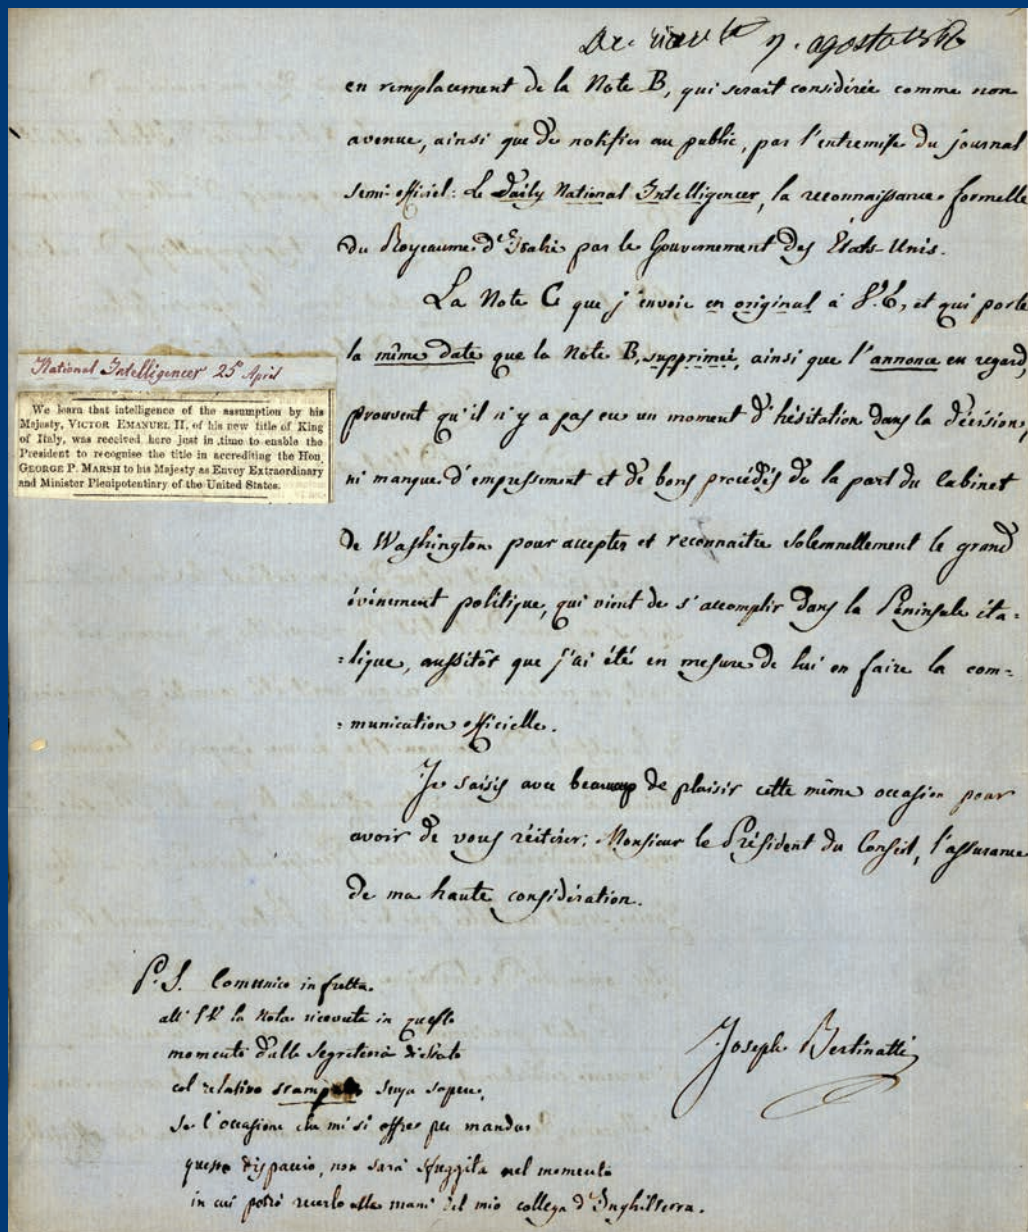 7. agosto
en remplacement de la Note B, qui serait considérée comme non
avenue, ainsi que de notifier au public, par l'entremise du journal
semi-officiel: Le Daily National Intelligencer, la reconnaissance formelle
du Royeaume d'Italie par le Gouvernement des Etats-Unis.
La Note C que j'envoie en original à V.E, et qui porte
la même date que la Note B, supprimée, ainsi que l'annonce en regard,
prouvent qu'il n'y a pas eu un moment d'hésitation dans la décision,
ni manque d'empressement et de bons procédés de la part du Cabinet
de Washington pour accepter et reconnaître solemnellement le grand
événement politique, qui vient de s'accomplir dans la Péninsule ita-
-lique, aussitôt que j'ai été en mesure de lui en faire la com-
-munication officielle.
Je saisis avec beaucoup de plaisir cette même occasion pour
avoir de vous réitérer, Monsieur le Président du Conseil, l'assurance
de ma haute considération.
National Intelligencer 25 April
We learn that intelligence of the assumption by his
Majesty, VICTOR EMANUEL II, of his new title of King
of Italy, was received here just in time to enable the
President to recognise the title in accrediting the Hon.
GEORGE P. MARSH to his Majesty as Envoy Extraordinary
and Minister Plenipotentiary of the United States.
P.S. Comunico in fretta
all' la Nota ricevuta in questo
momento dalla Segreteria di Stato
col relativo senza sapere,
se l'occasione che mi si offre per mandar
questo dispaccio, non sarà sfuggita nel momento
in cui potrò recarlo alle mani del mio collega d'Inghilterra.
Joseph Bertinatti